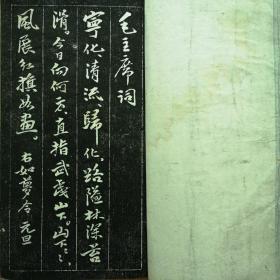 毛主席词
宁化清流归化路隘林深苔
滑。今日向何方直指武夷山下。山下〻
风展红旗如画。右如梦令元旦